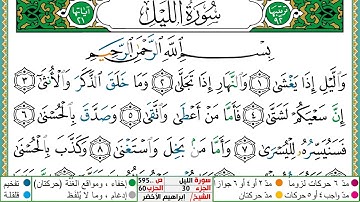 ترتيبها ٩٢ سُورَةُ اللَّيْلِ آياتها ٢١
بِسْمِ اللَّهِ الرَّحْمَٰنِ الرَّحِيمِ
وَاللَّيْلِ إِذَا يَغْشَىٰ ١ وَالنَّهَارِ إِذَا تَجَلَّىٰ ٢ وَمَا خَلَقَ الذَّكَرَ وَالْأُنثَىٰ ٣
إِنَّ سَعْيَكُمْ لَشَتَّىٰ ٤ فَأَمَّا مَنْ أَعْطَىٰ وَاتَّقَىٰ ٥ وَصَدَّقَ بِالْحُسْنَىٰ ٦
فَسَنُيَسِّرُهُ لِلْيُسْرَىٰ ٧ وَأَمَّا مَن بَخِلَ وَاسْتَغْنَىٰ ٨ وَكَذَّبَ بِالْحُسْنَىٰ
مد ٦ حركات لزوما مد ٢ أو ٤ أو ٦ جوازا سورة الليل ص595 إخفاء ، ومواقع الغنة (حركتان) تفخيم
مد واجب ٤ أو ٥ حركات مد حركتان الجزء 30 الحزب 60 إدغام ، وما لا يُلفظ قلقلة
الشيخ/ ابراهيم الأخضر